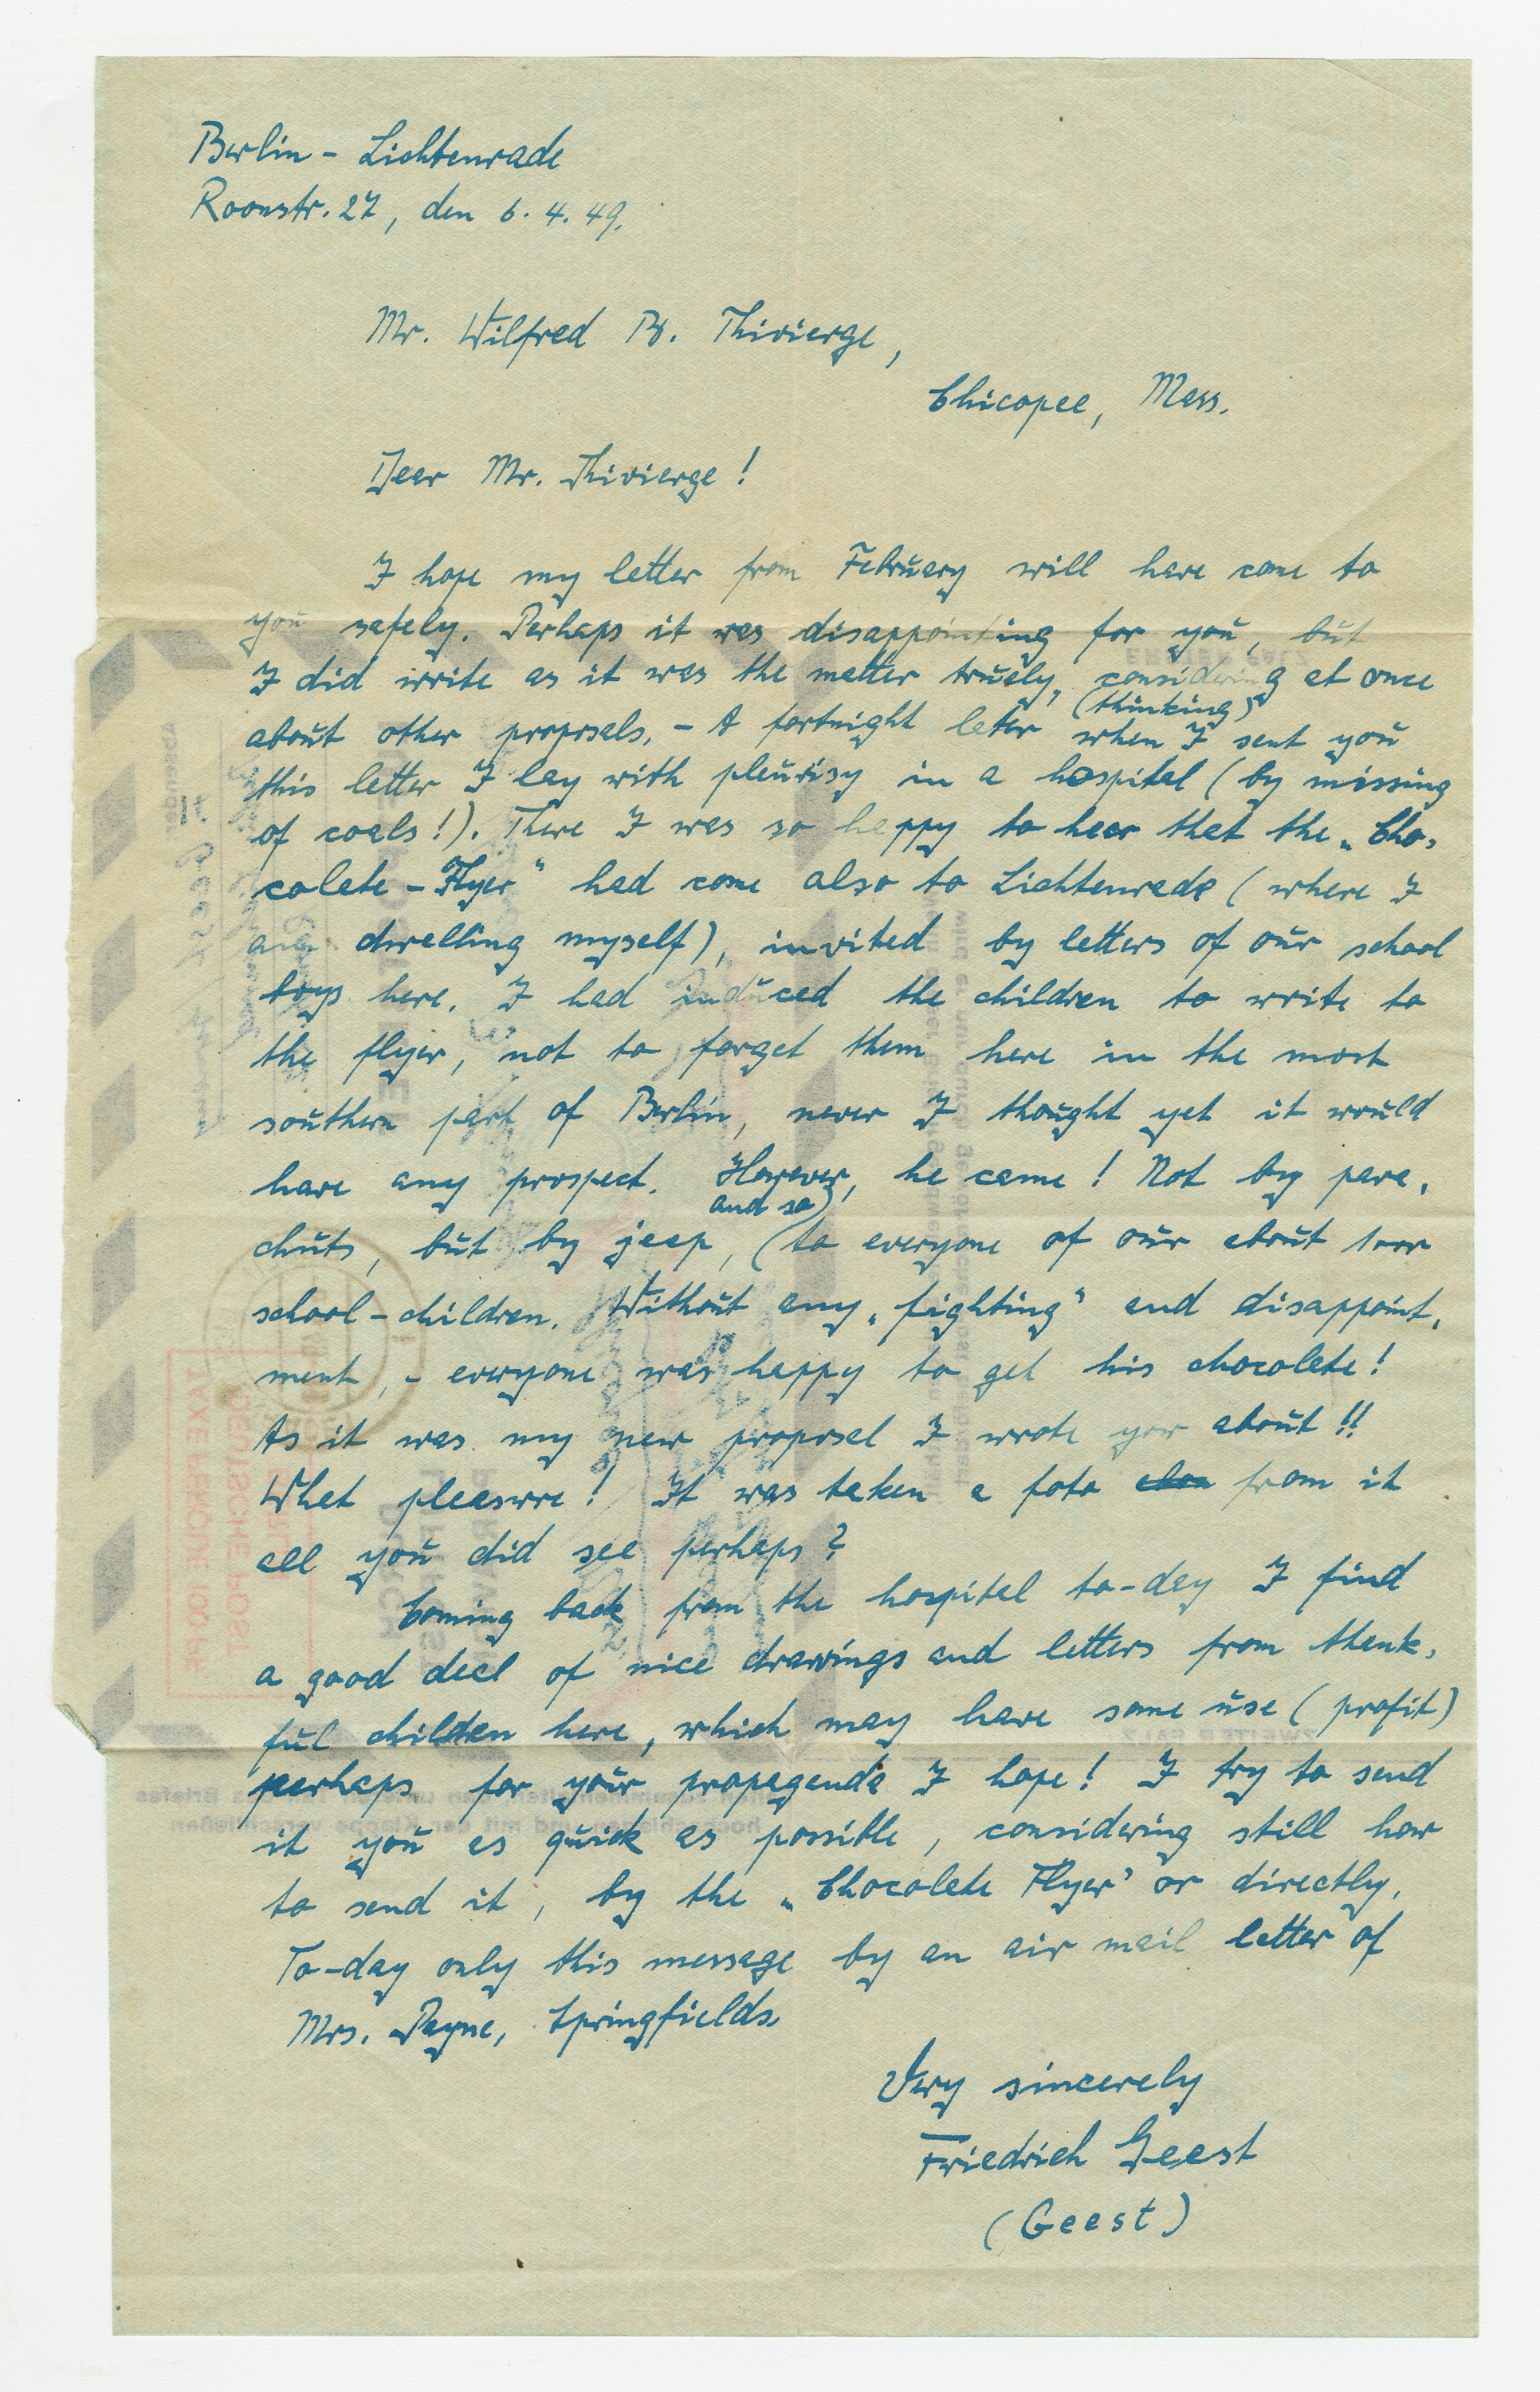 Berlin - Lichtenrade
Roonstr. 27, den 6. 4. 49.
Mr. Wilfred B. Thivierge,
Chicopee, Mass.
Dear Mr. Thivierge!
I hope my letter from February will have come to
you safely. Perhaps it was disappointing for you, but
I did write as it was the matter truely, considering at once
(thinking)
about other proposals. - A fortnight later when I sent you
this letter I lay with pleurisy in a hospital (by missing
of coals!). There I was so happy to hear that the „Cho-
colate - Flyer" had come also to Lichtenrade (where I
am dwelling myself), invited by letters of our school
boys here. I had induced the children to write to
the flyer, not to forget them here in the most
southern part of Berlin, never I thought yet it would
have any prospect. However, he came! Not by para-
chuts, but by jeep, (to everyone of our about 1000
and so)
school - children. Without any „fighting" and disappoint-
ment, - everyone was happy to get his chocolate!
As it was my new proposal I wrote you about!!
What pleaswre! It was taken a foto from it
all you did see perhaps?
Coming back from the hospital to-day I find
a good deal of nice drawings and letters from thank-
ful children here, which may have some use (profit)
perhaps for your propaganda I hope! I try to send
it you as quick as possible, considering still how
to send it, by the „Chocolate Flyer" or directly.
To-day only this message by an air mail letter of
Mrs. Payne, Springfields.
Very sincerely
Friedrich Geest
(Geest)